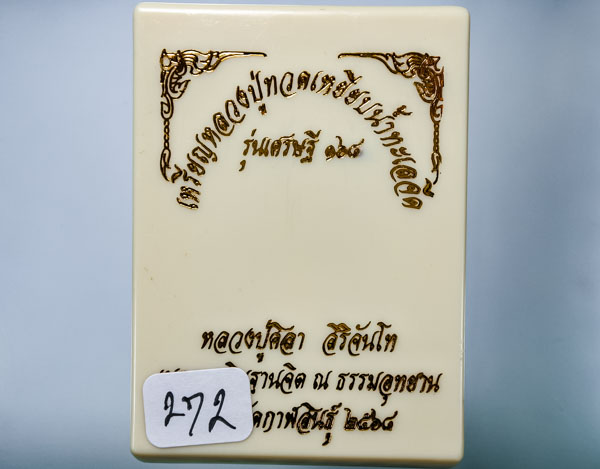 เหรียญหลวงปู่ทวดเหยียบน้ำทะเลจืด
รุ่นเศรษฐี ๑๖๘
หลวงปู่ศิลา สิริจันโท
ฐานจิต ณ ธรรมอุทยาน
กาฬสินธุ์ ๒๕๖๘
272